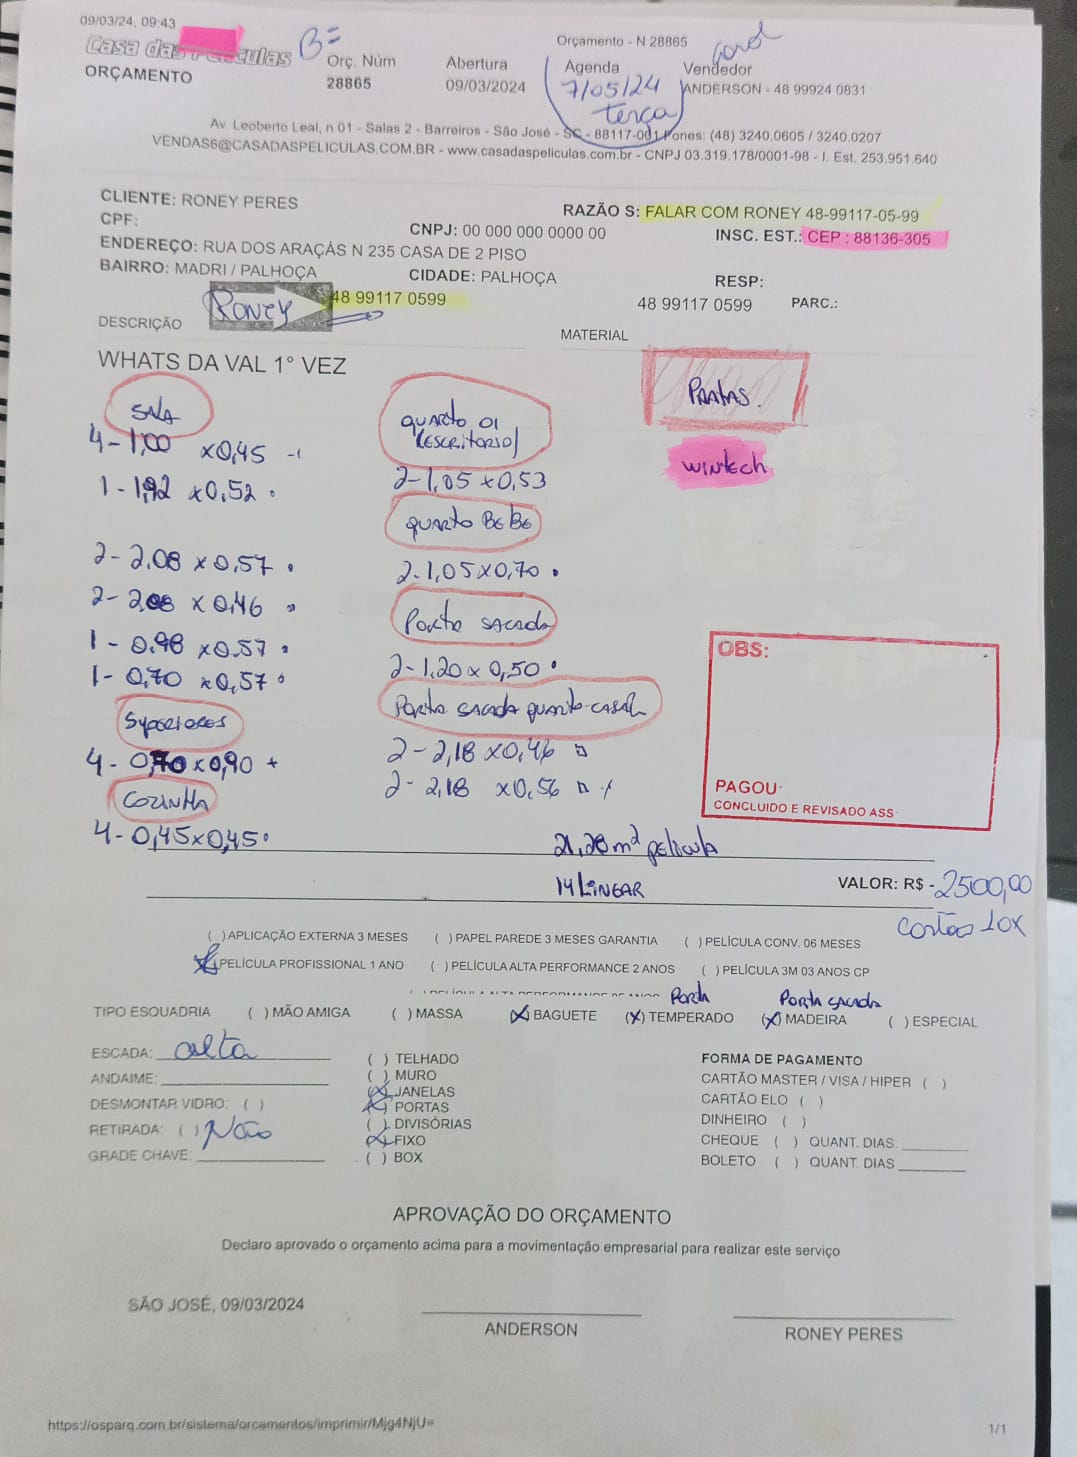 09/03/24, 09:43
Orçamento - N 28865
Casa das Películas
B=
Orç. Núm
Abertura
Agenda
Vendedor
ORÇAMENTO
28865
09/03/2024
7/05/24
terça
ANDERSON - 48 99924 0831
Av. Leoberto Leal, n 01 - Salas 2 - Barreiros - São José - SC - 88117-001 Fones: (48) 3240.0605 / 3240.0207
VENDAS6@CASADASPELICULAS.COM.BR - www.casadaspeliculas.com.br - CNPJ 03.319.178/0001-98 - I. Est. 253.951.640
CLIENTE: RONEY PERES
RAZÃO S: FALAR COM RONEY 48-99117-05-99
CPF:
CNPJ: 00 000 000 0000 00
INSC. EST.: CEP : 88136-305
ENDEREÇO: RUA DOS ARAÇÁS N 235 CASA DE 2 PISO
BAIRRO: MADRI / PALHOÇA
CIDADE: PALHOÇA
RESP:
RONEY
48 99117 0599
48 99117 0599
PARC.:
DESCRIÇÃO
MATERIAL
WHATS DA VAL 1° VEZ
SALA
4 - 1,00 x 0,45
1 - 1,92 x 0,52
2 - 2,08 x 0,57
2 - 2,08 x 0,46
1 - 0,98 x 0,57
1 - 0,70 x 0,57
4 - 0,70 x 0,90 +
COZINHA
4 - 0,45 x 0,45
QUARTO 01
(ESCRITORIO)
2 - 1,05 x 0,53
QUARTO BEBE
2 - 1,05 x 0,70
PORTA SACADA
2 - 1,20 x 0,50
PORTA SACADA QUARTO CASAL
2 - 2,18 x 0,46
2 - 2,18 x 0,56
PRATAS.
WINTECH
OBS:
PAGOU:
CONCLUIDO E REVISADO ASS
21,28 m² película
14 LINEAR
VALOR: R$ - 2500,00
cartão 10x
( ) APLICAÇÃO EXTERNA 3 MESES ( ) PAPEL PAREDE 3 MESES GARANTIA ( ) PELÍCULA CONV. 06 MESES
(X) PELÍCULA PROFISSIONAL 1 ANO ( ) PELÍCULA ALTA PERFORMANCE 2 ANOS ( ) PELÍCULA 3M 03 ANOS CP
PORTA
PORTA SACADA
TIPO ESQUADRIA ( ) MÃO AMIGA ( ) MASSA (X) BAGUETE (X) TEMPERADO (X) MADEIRA ( ) ESPECIAL
ESCADA: alta
ANDAIME:
DESMONTAR VIDRO: ( )
RETIRADA: ( ) Não
GRADE CHAVE:
( ) TELHADO
( ) MURO
(X) JANELAS
(X) PORTAS
( ) DIVISÓRIAS
(X) FIXO
( ) BOX
FORMA DE PAGAMENTO
CARTÃO MASTER / VISA / HIPER ( )
CARTÃO ELO ( )
DINHEIRO ( )
CHEQUE ( ) QUANT. DIAS.
BOLETO ( ) QUANT. DIAS
APROVAÇÃO DO ORÇAMENTO
Declaro aprovado o orçamento acima para a movimentação empresarial para realizar este serviço
SÃO JOSÉ, 09/03/2024
ANDERSON
RONEY PERES
https://osparq.com.br/sistema/orcamentos/imprimir/Mjg4NjU=
1/1